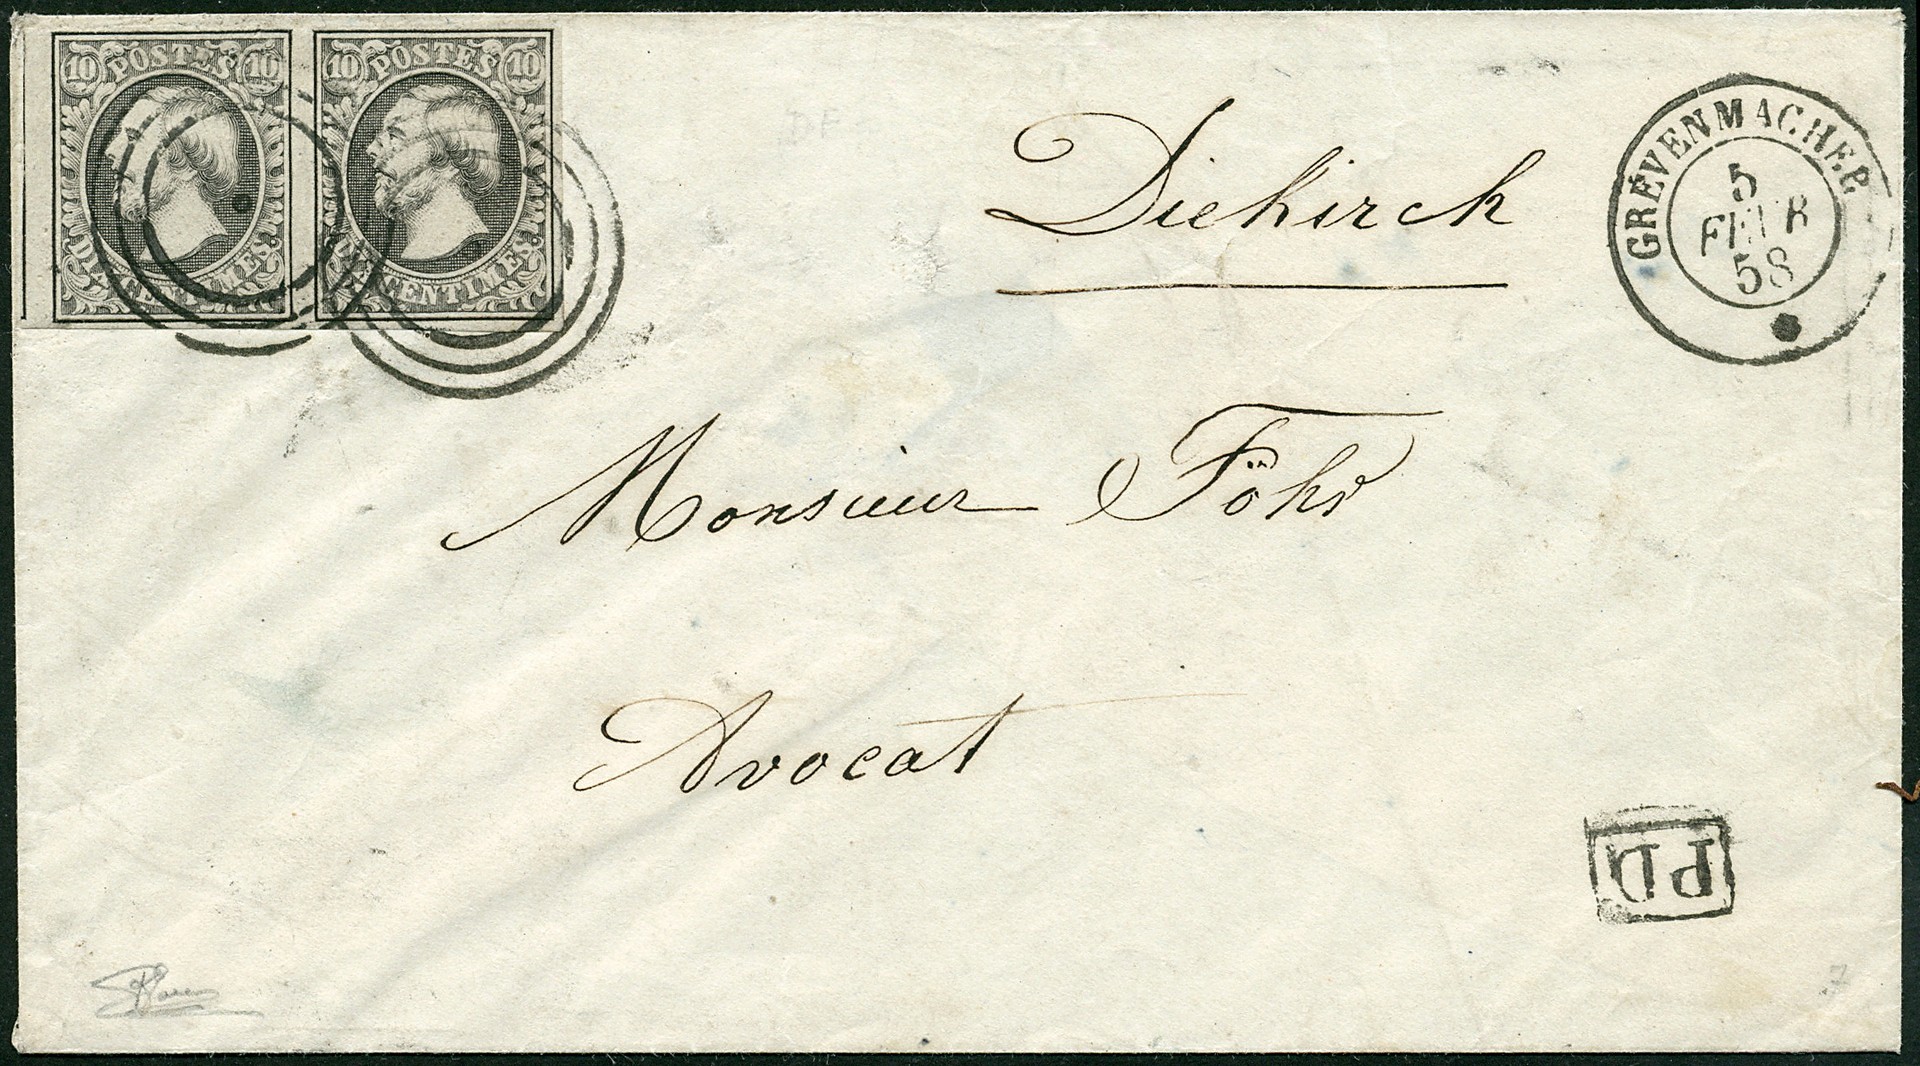 10 POSTES 10
DIX CENTIMES
10 POSTES 10
DIX CENTIMES
GREVENMACHER
5
FEVR
58
Diekirch
Monsieur Föhr
Avocat
PD
7